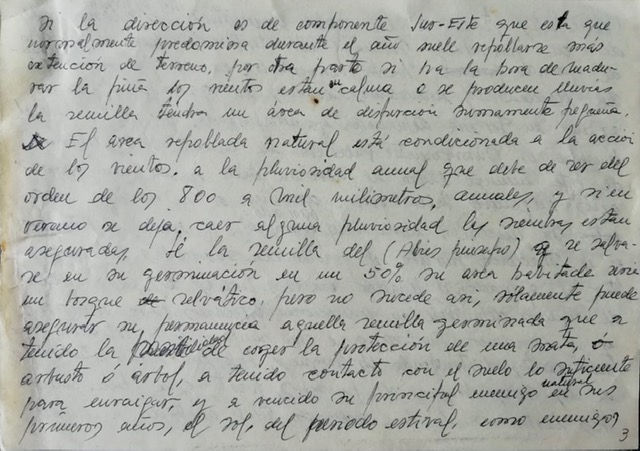 Si la dirección es de componente Sur-Este que esta que
normalmente predomina durante el año suele repoblarse más
extención de terreno, por otra parte si ha la hora de madu-
rar la piña los vientos estan en calma o se producen lluvias
la semilla tendra un área de dispurción sumamente pequeña.
El area repoblada natural está condicionada a la accion
de los vientos. a la pluviosidad anual que debe de ser del
orden de los 800 a mil milimetros, annales, y si en
verano se deja caer alguna pluviosidad las siembras estan
aseguradas Sé la semilla del (Abies pinsapo) se salva-
se en su germinación en un 50% su area habitade seria
un bosque selvático, pero no sucede asi, solamente puede
asegurar su permanencia aquella semilla germinada que a
tenido la de coger la protección de una mata, ó
arbusto ó árbol, a tenido contacto con el suelo lo suficiente
para enraigar, y a vencido su principal enemigo natural en sus
primeros años, el sol, del periodo estival, como enemigos
3